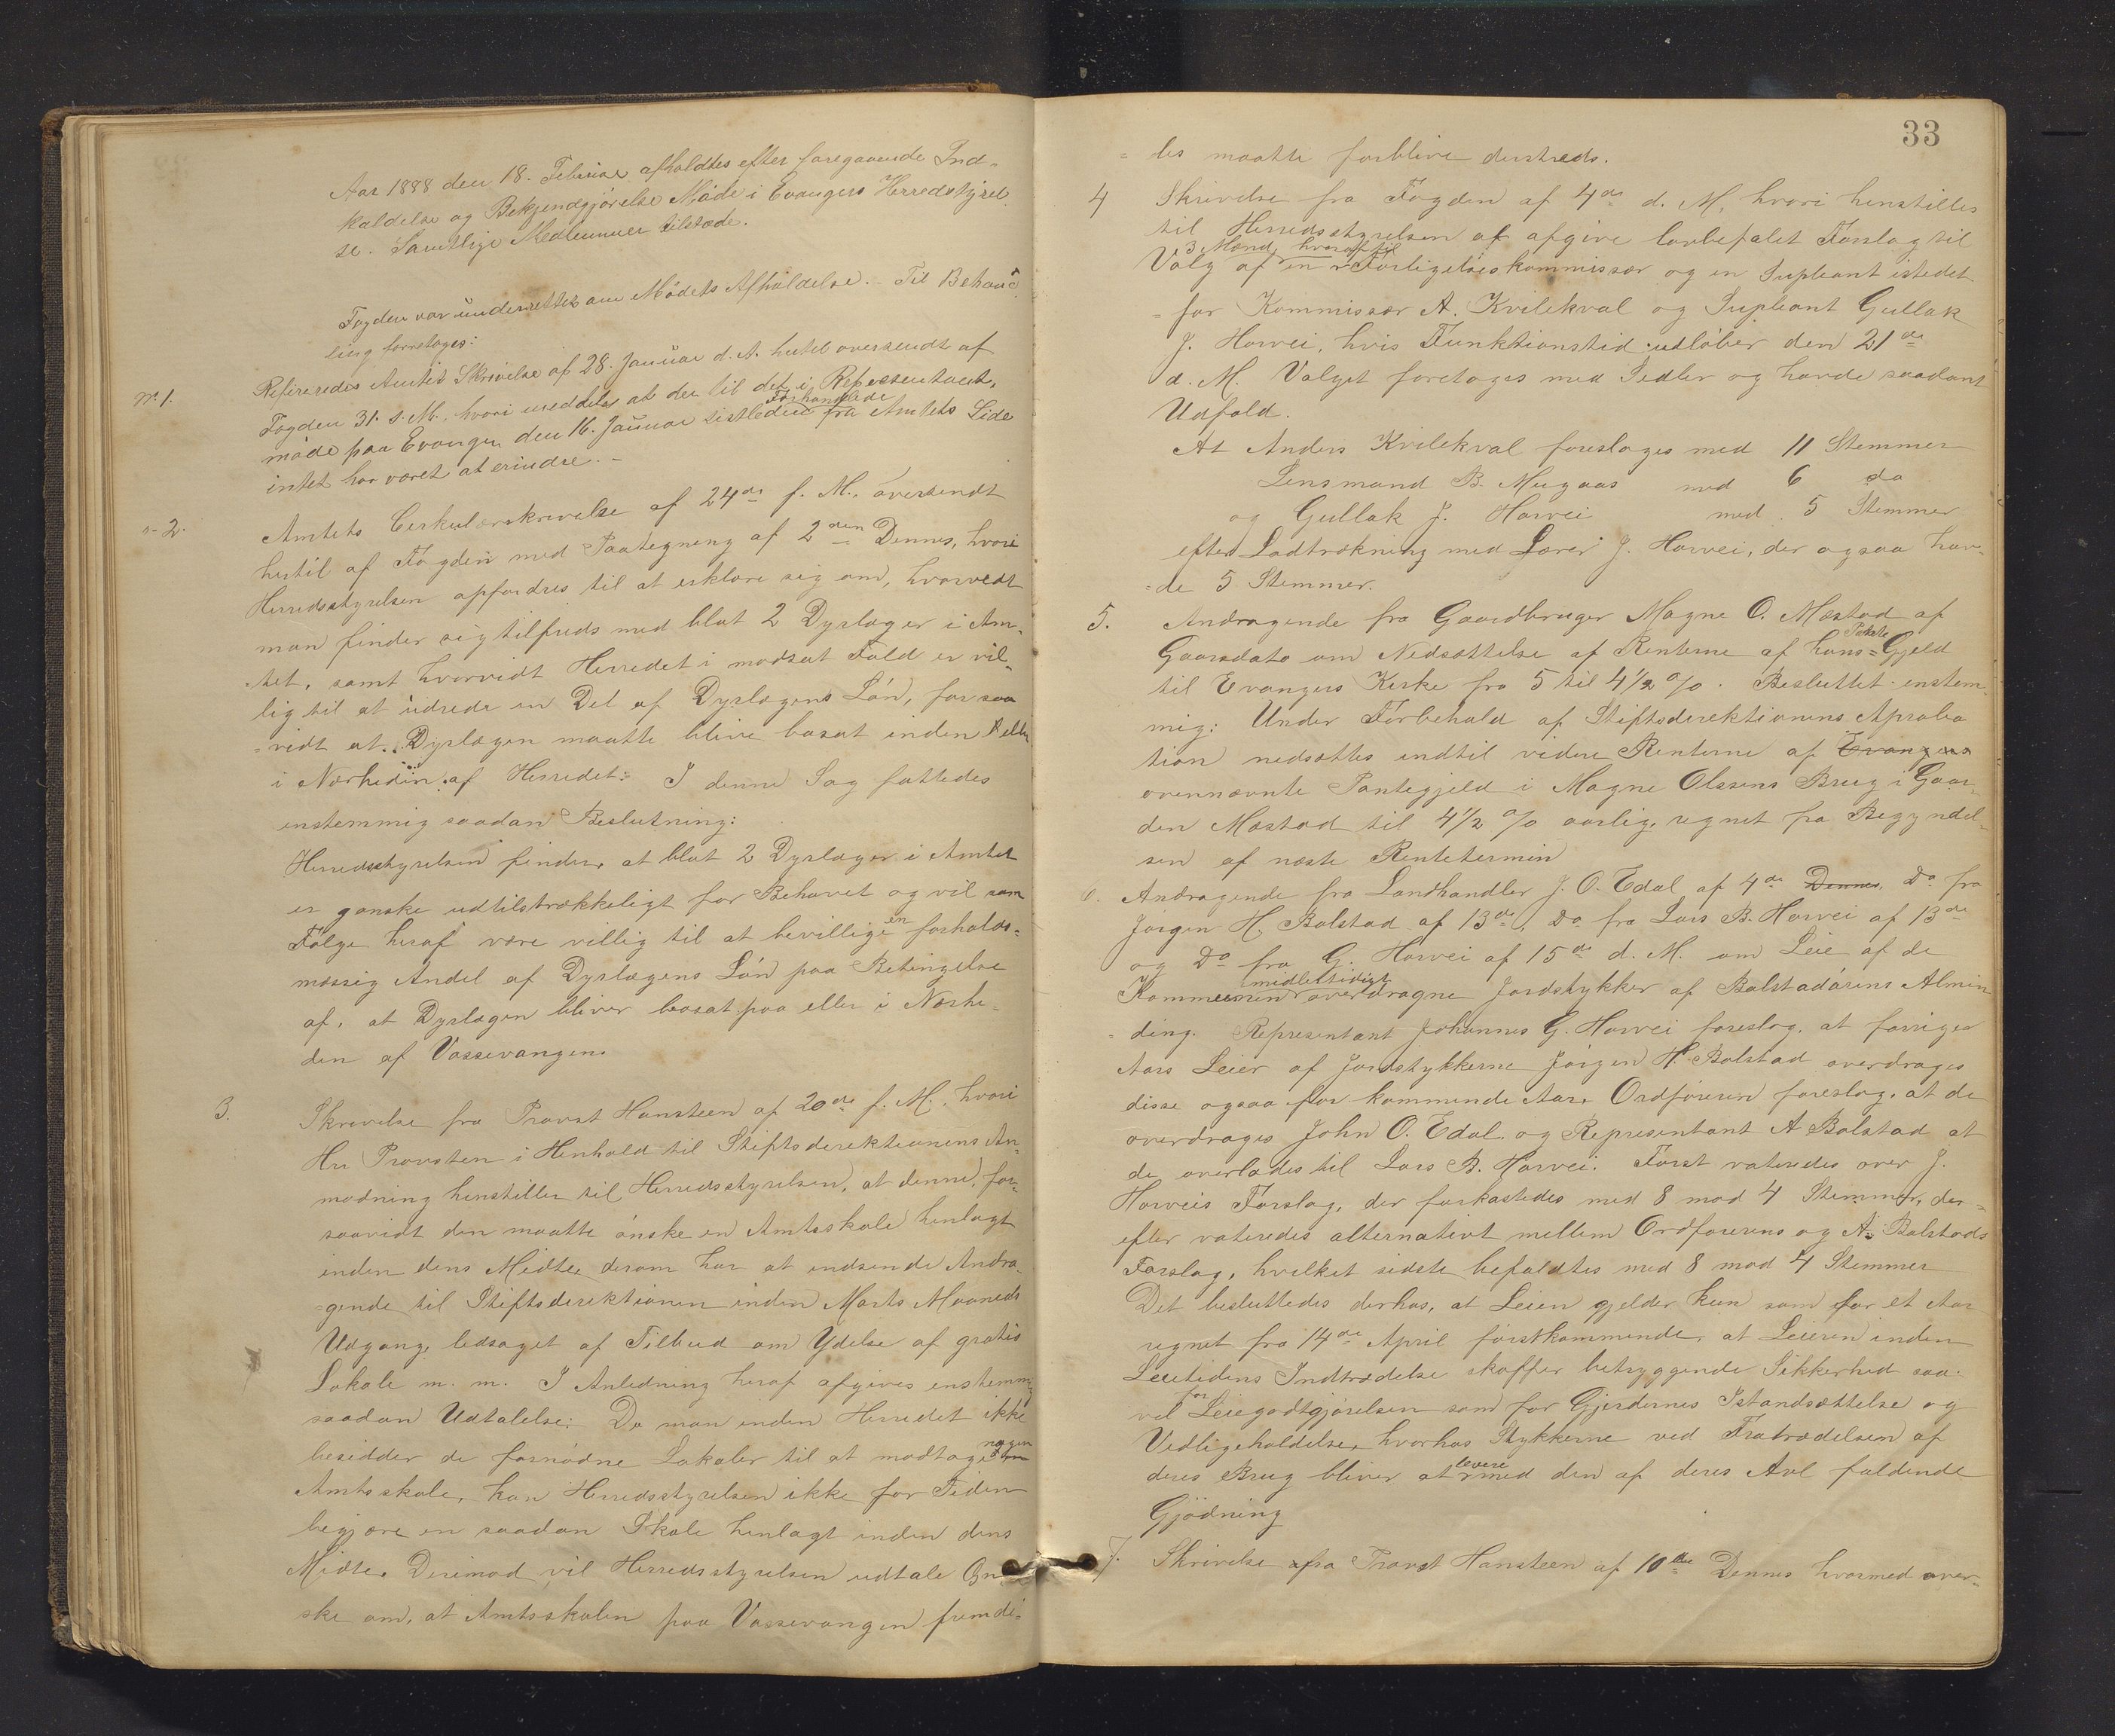 Aar 1888 den 18. Februar afholdtes efter foregaaende Ind-
kaldelse og Bekjendgjørelse Møde i Evangers Herredstyrel
se. Samtlige Medlemmer tilstæde.
Fogden var underrettet om Mødets Afholdelse. - Til Behand
ling foretoges:
Nr 1. Refereredes Amtets Skrivelse af 28. Januar d. A. hertil oversendt af
Fogden 31. s. M., hvori meddeles at der til det i Repræsentant-
møde paa Evanger den 16. Januar sistleden Forhandlede fra Amtets Side
intet har været at erindre. -
" 2. Amtets Cirkulærskrivelse af 24de f. M., oversendt
hertil af Fogden med Paategning af 2den Dennes, hvori
Herredsstyrelsen opfordres til at erklære sig om, hvorvidt
man finder sig tilfreds med blot 2 Dyrlæger i Am-
tet, samt hvorvidt Herredet i modsat Fald er vil-
lig til at udrede en Del af Dyrlægens Løn, for saa
= vidt at Dyrlægen maatte blive bosat inden eller
i Nærheden af Herredet: I denne Sag fattedes
enstemmig saadan Beslutning:
Herredsstyrelsen finder, at blot 2 Dyrlæger i Amtet
er ganske utilstrækkeligt for Behovet og vil som
Følge heraf være villig til at bevillige en forholds=
mæssig Andel af Dyrlægens Løn paa Betingelse
af, at Dyrlægen bliver bosat paa eller i Nærhe-
den af Vossevangen.
3. Skrivelse fra Provst Hansteen af 20de f. M., hvori
Hr Provsten i Henhold til Stiftsdirektionens An-
modning henstiller til Herredsstyrelsen, at denne, for-
saavidt den maatte ønske en Amtsskole henlagt
inden dens Midte, derom har at indsende Andra-
gende til Stiftsdirektionen inden Marts Maaneds
Udgang, ledsaget af Tilbud om Ydelse af gratis
Lokale m. m. I Anledning heraf afgives enstemmig
saadan Udtalelse: Da man inden Herredet ikke
besidder de fornødne Lokaler til at modtage nogen
Amtsskole, kan Herredsstyrelsen ikke for Tiden
begjære en saadan Skole henlagt inden dens
Midte. Derimod vil Herredsstyrelsen udtale Øn-
ske om, at Amtsskolen paa Vossevangen fremde=
33
= les maatte forblive dersteds.
4 Skrivelse fra Fogden af 4de d. M. hvori henstilles
til Herredsstyrelsen at afgive lovbefalet Forslag til
Valg af 3 Mænd, hvoraf til en Forligelseskommissær og en Supleant istedet
= for Kommissær A. Kvilekval og Supleant Gullak
J. Horvei, hvis Funktionstid udløber den 21de
d. M. Valget foretoges med Sedler og havde saadant
Udfald.
At Anders Kvilekval foreslages med 11 Stemmer
Lensmand B. Mugaas med 6 do
og Gullak J. Horvei med 5 Stemmer
efter Lodtrækning med Lærer J. Horvei, der ogsaa hav-
= de 5 Stemmer.
5. Andragende fra Gaardbruger Magne O. Mæstad af
Gaarsdato om Nedsættelse af Renterne af hans Pante=Gjeld
til Evangers Kirke fra 5 til 4½ %. Besluttet enstem-
mig: Under Forbehold af Stiftsdirektionens Aproba
tion nedsættes indtil videre Renterne af Evangers
ovennævnte Pantegjeld i Magne Olssens Brug i Gaar-
den Mæstad til 4½ % aarlig, regnet fra Begyndel-
sen af næste Rentetermin
6. Andragende fra Landhandler J. O. Edal af 4de Dennes, Do fra
Jørgen H. Bolstad af 13de, Do fra Lars B. Horvei af 13de
og Do fra G. Horvei af 15de d. M. om Leie af de
Kommunen midlertidigt overdragne Jordstykker af Bolstadørens Almin
= ding. Representant Johannes G. Horvei foreslog, at forrige
Aars Leier af Jordstykkerne Jørgen H. Bolstad overdrages
disse ogsaa for kommende Aar. Ordføreren foreslog, at de
overdrages John O. Edal. og Representant A Bolstad at
de overlades til Lars B. Horvei. Først voteredes over J.
Horveis Forslag, der forkastedes med 8 mod 4 Stemmer, der=
efter voteredes alternativt mellem Ordførerens og A. Bolstads
Forslag, hvilket sidste befaldtes med 8 mod 4 Stemmer
Det besluttedes derhos, at Leien gjelder kun som for et Aar
regnet fra 14de April førstkommende, at Leieren inden
Leietidens Indtrædelse skaffer betryggende Sikkerhed saa-
vel for Leiegodtgjørelsen som for Gjerdernes Istandsættelse og
Vedligeholdelse, hvorhos Stykkerne ved Fratrædelsen af
deres Brug bliver at levere med den af deres Avl faldende
Gjødning
7. Skrivelse fra Provst Hansteen af 10de Dennes hvormed over=